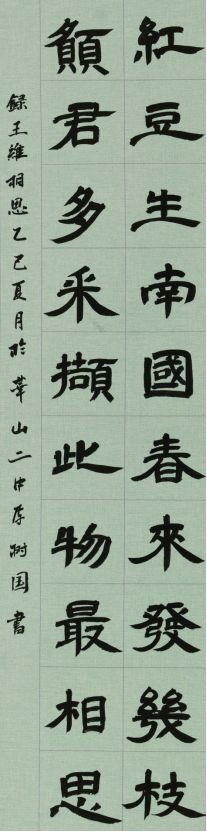 紅豆生南國春來發幾枝
願君多采擷此物最相思
錄王維相思乙巳夏月於華山二中国書